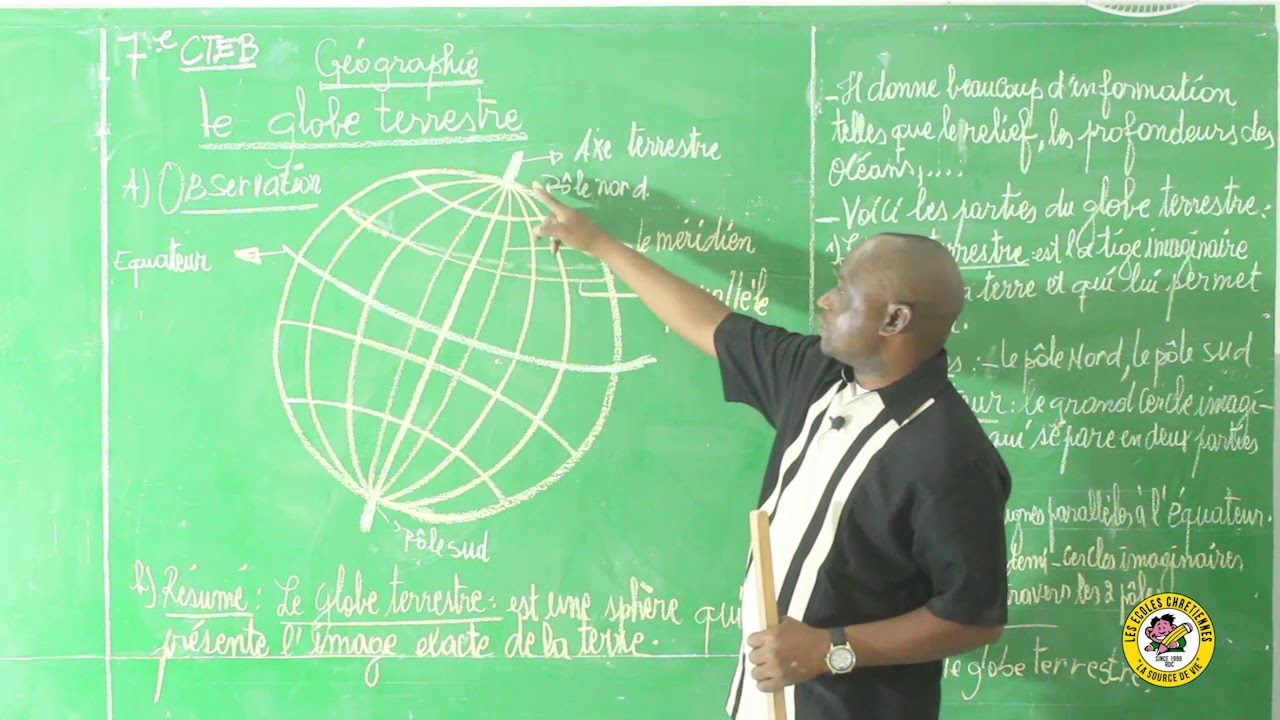 7ᵉ CTEB
Géographie
Le globe terrestre
A) Observation
Axe terrestre
Pôle nord
Equateur
le méridien
allèle
Pôle sud
b) Résumé : Le Globe terrestre : est une sphère qui
présente l'image exacte de la terre.
- Il donne beaucoup d'information
telles que le relief, les profondeurs des
Océans,....
- Voici les parties du globe terrestre :
terrestre : est la tige imaginaire
la terre et qui lui permet
: - le pôle Nord, le pôle sud
eur : le grand Cercle imagi-
qui sépare en deux parties
ignes parallèles à l'équateur.
demi-cercles imaginaires
travers les 2 pôles
le globe terrestre.
LES ECOLES CHRETIENNES
SINCE 1999
RDC
"LA SOURCE DE VIE"